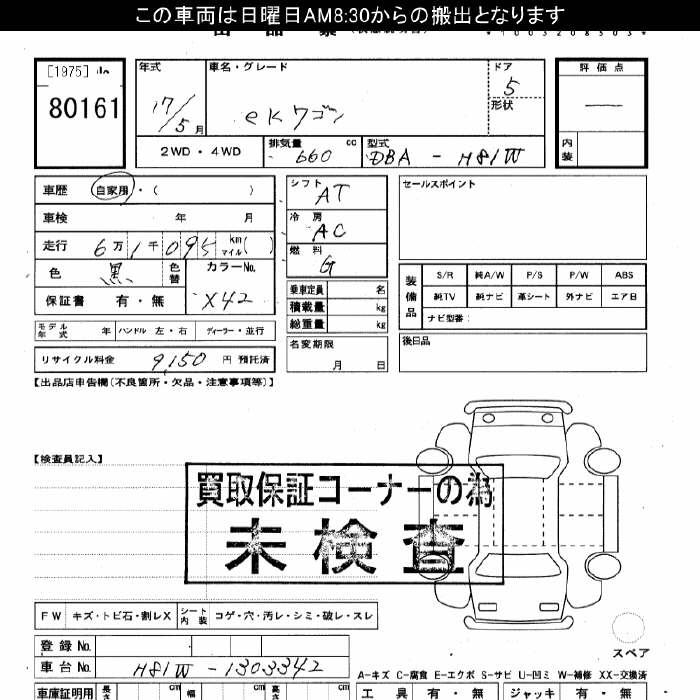 この車両は日曜日AM8:30からの搬出となります
[1975]
80161
年式
17/5月
車名・グレード
ekワゴン
ドア
5
形状
評価点
内装
2WD・4WD
排気量 660 cc
型式 DBA - H81W
車歴 自家用・( )
車検 年 月
走行 6万1千095 km マイル( )
色 黒 色替
カラーNo. X42
保証書 有・無
シフト AT
冷房 AC
燃料 G
乗車定員 名
積載量 kg
総重量 kg
セールスポイント
装備品
S/R 純A/W P/S P/W ABS
純TV 純ナビ 革シート 外ナビ エアB
ナビ型番:
モデル年式 年 ハンドル 左・右 ディーラー・並行
名変期限 月 日
後日品
リサイクル料金 9,150 円 預託済
【出品店申告欄(不良箇所・欠品・注意事項等)】
【検査員記入】
買取保証コーナーの為
未検査
FW キズ・トビ石・割レX シート内装 コゲ・穴・汚レ・シミ・破レ・スレ
スペア
登録No.
車台No. H81W - 1303342
A-キズ C-腐食 E-エクボ S-サビ U-凹ミ W-補修 XX-交換済
車庫証明用 長さ cm 幅 cm 高さ cm
工具 有・無 ジャッキ 有・無